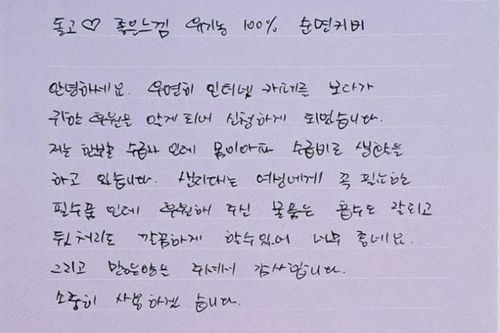 돌고♡ 좋은느낌 유기농 100% 순면커버
안녕하세요. 우연히 인터넷 카페를 보다가
귀한 후원을 알게 되어 신청하게 되었습니다.
저는 한부모 수급자 인데 몸이아파 수급비로 생활을
하고 있습니다. 생리대는 여성에게 꼭 필요한
필수품 인데 후원해 주신 물품은 흡수도 잘되고
뒷처리도 깔끔하게 할수있어 너무 좋네요.
그리고 많은양을 주셔서 감사합니다.
소중히 사용하겠 습니다.